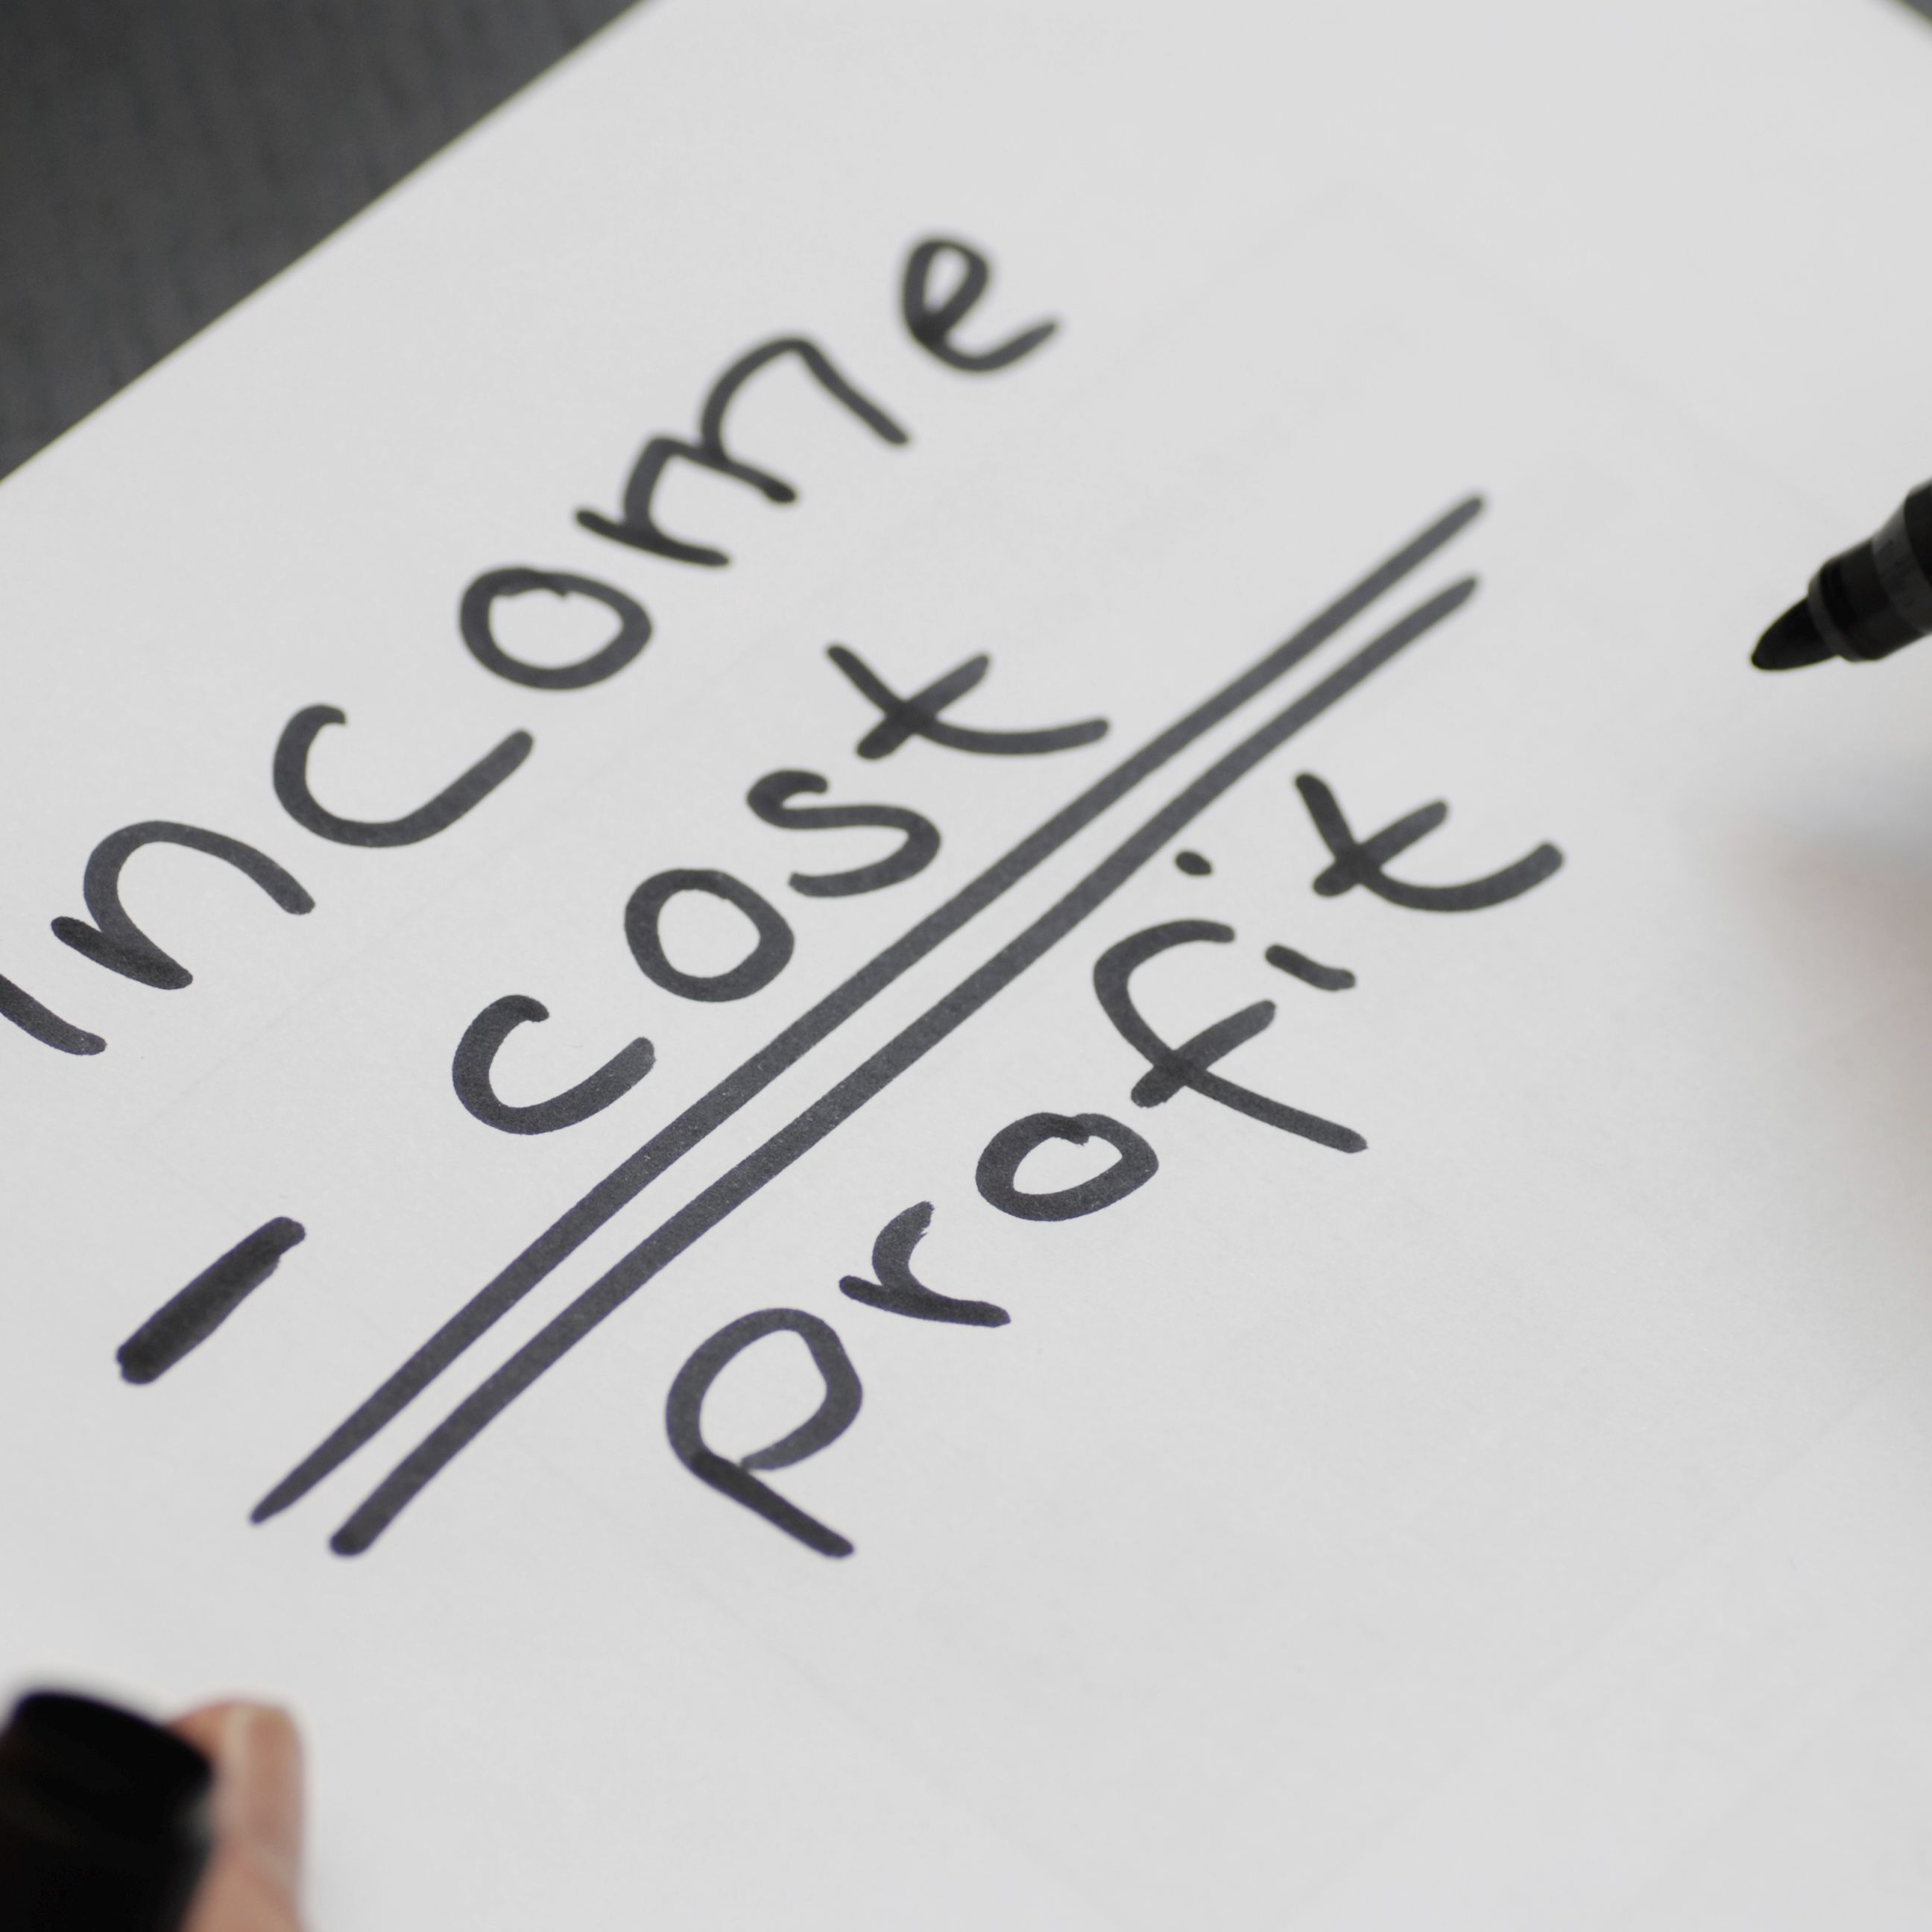 income
- cost
profit